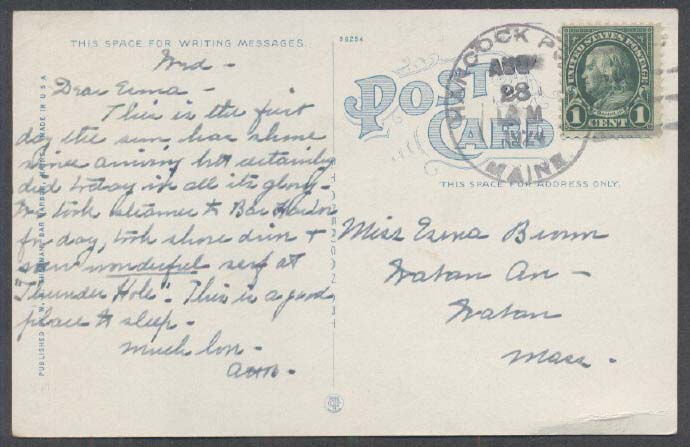 THIS SPACE FOR WRITING MESSAGES.
98254
Wed -
Dear Ezma -
This is the first
day the sun has shone
since arriving but certainly
did today in all its glory -
took steamer to Bar Harbor
for day, took shore drive +
saw wonderful surf at
"Thunder Hole". This is a good
place to sleep.
Much love -
PUBLISHED BY W. SHERMAN, BAR HARBOR, MAINE. MADE IN U.S.A
POST
CARD
HANCOCK PO
AUG
28
AM
1924
MAINE
UNITED STATES POSTAGE
FRANKLIN
1 CENT 1
THIS SPACE FOR ADDRESS ONLY.
Miss Ezma Brown
Naban Av -
Naban
Mass.